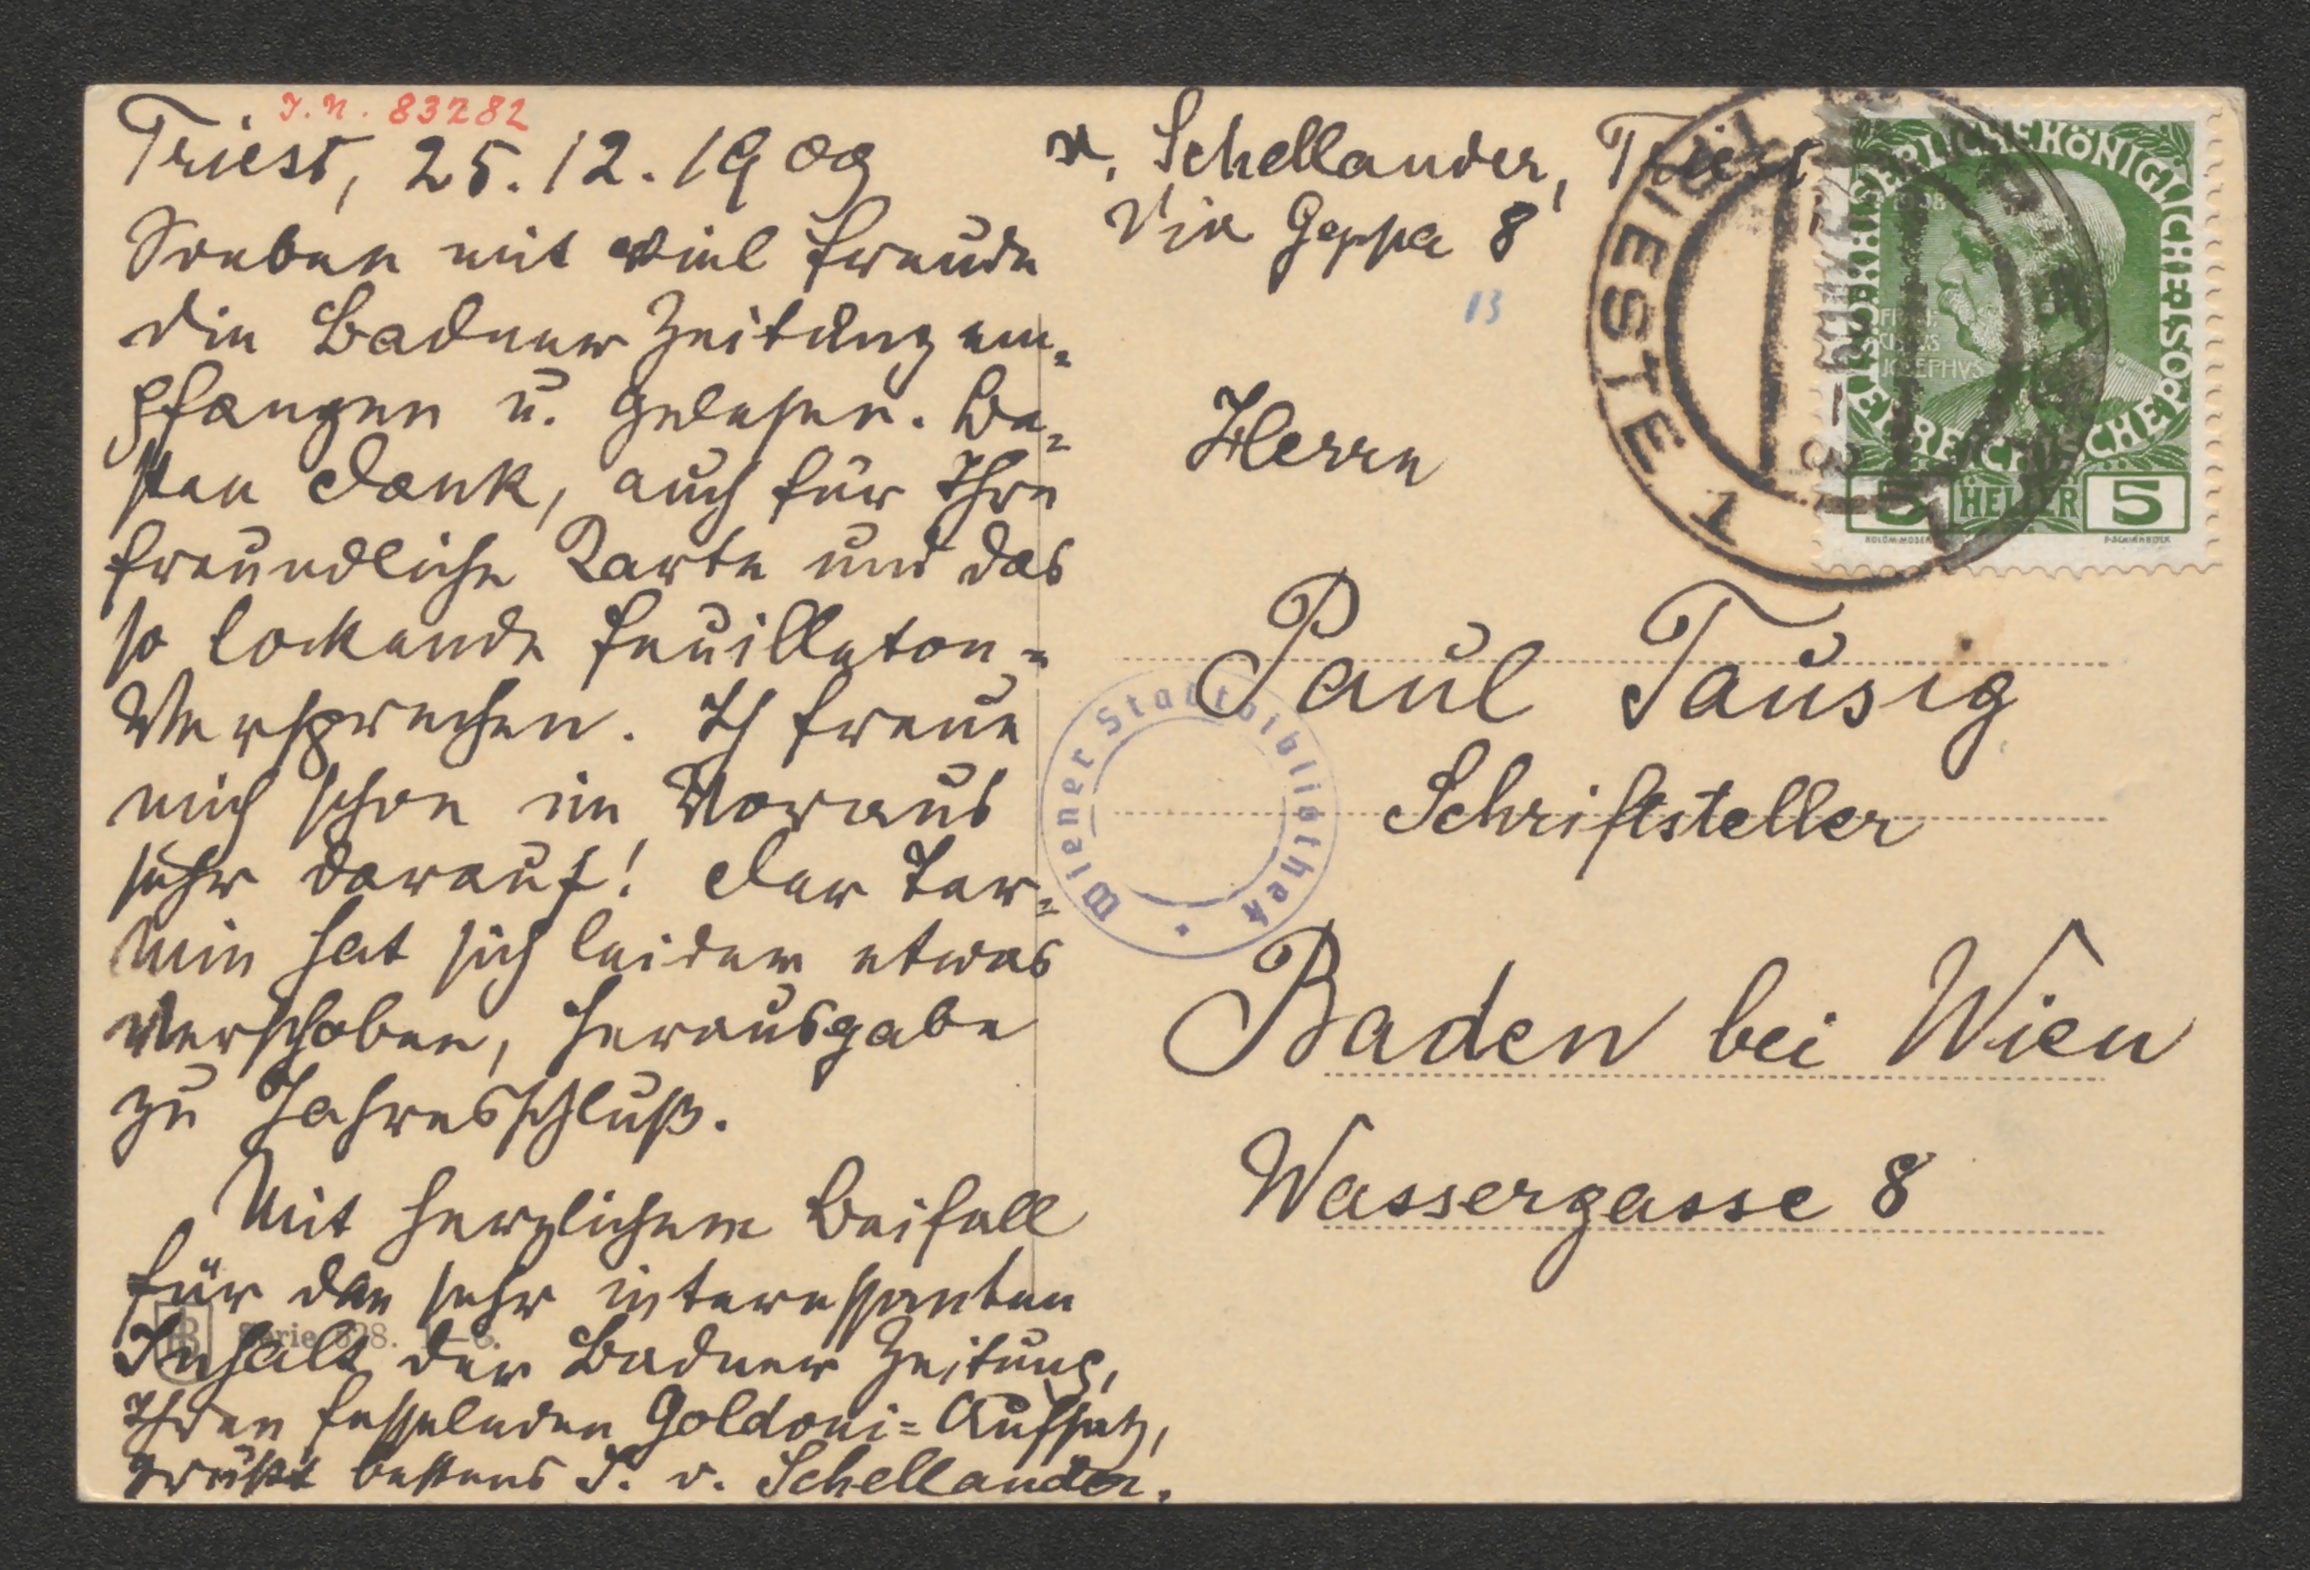 I. N. 83282
Triest, 25.12.1909
Soeben mit viel Freude
die Badner Zeitung em-
pfangen u. gelesen. Be-
sten Dank, auch für Ihre
freundliche Karte und das
so lockende Feuilleton-
Versprechen. Ich freue
mich schon im Voraus
sehr darauf! Der Ter-
min hat sich leider etwas
verschoben, Herausgabe
zu Jahresschluß.
Mit herzlichem Beifall
für den sehr interessanten
Inhalt der Badner Zeitung,
Ihren fesselnden Goldoni-Aufsatz,
grüßt bestens I. v. Schellander.
Serie
v. Schellander, Triest
Via Geppa 8
13
Herrn
Paul Tausig
Schriftsteller
Baden bei Wien
Wassergasse 8
Wiener Stadtbibliothek
TRIESTE 1
KAISERLICHE KÖNIGLICHE ÖSTERREICHISCHE POST
1908
FRANCISCUS
JOSEPHVS
5 HELLER 5
KOLOM. MOSER